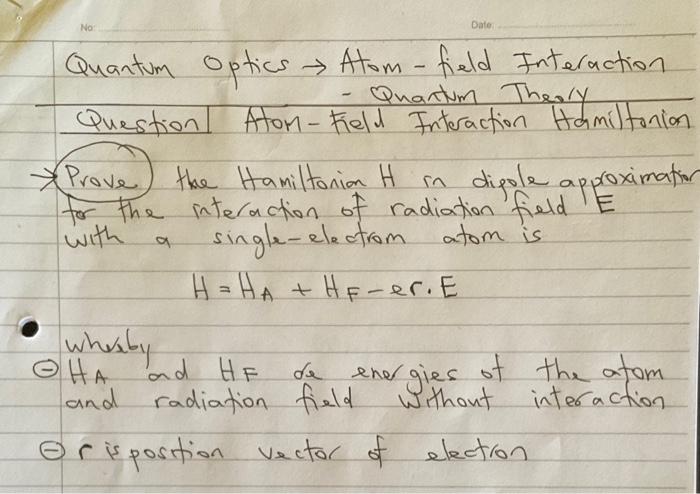 No:
Date:
Quantum Optics → Atom - field Interaction
- Quantum Theory
Question | Atom - Field Interaction Hamiltonian
→ Prove the Hamiltonian H in dipole approximation
for the interaction of radiation field E
with a single-electrom atom is
H = H_A + H_F - er. E
whereby
⊖ H_A and H_F are energies of the atom
and radiation field without interaction
⊖ r is position vector of electron